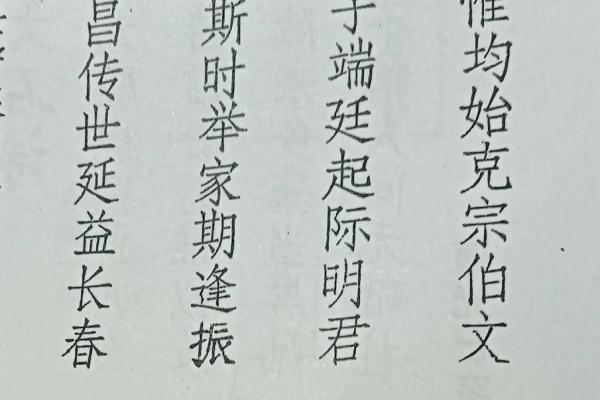 惟均始克宗伯文
于端廷起际明君
斯时举家期逢振
昌传世延益长春